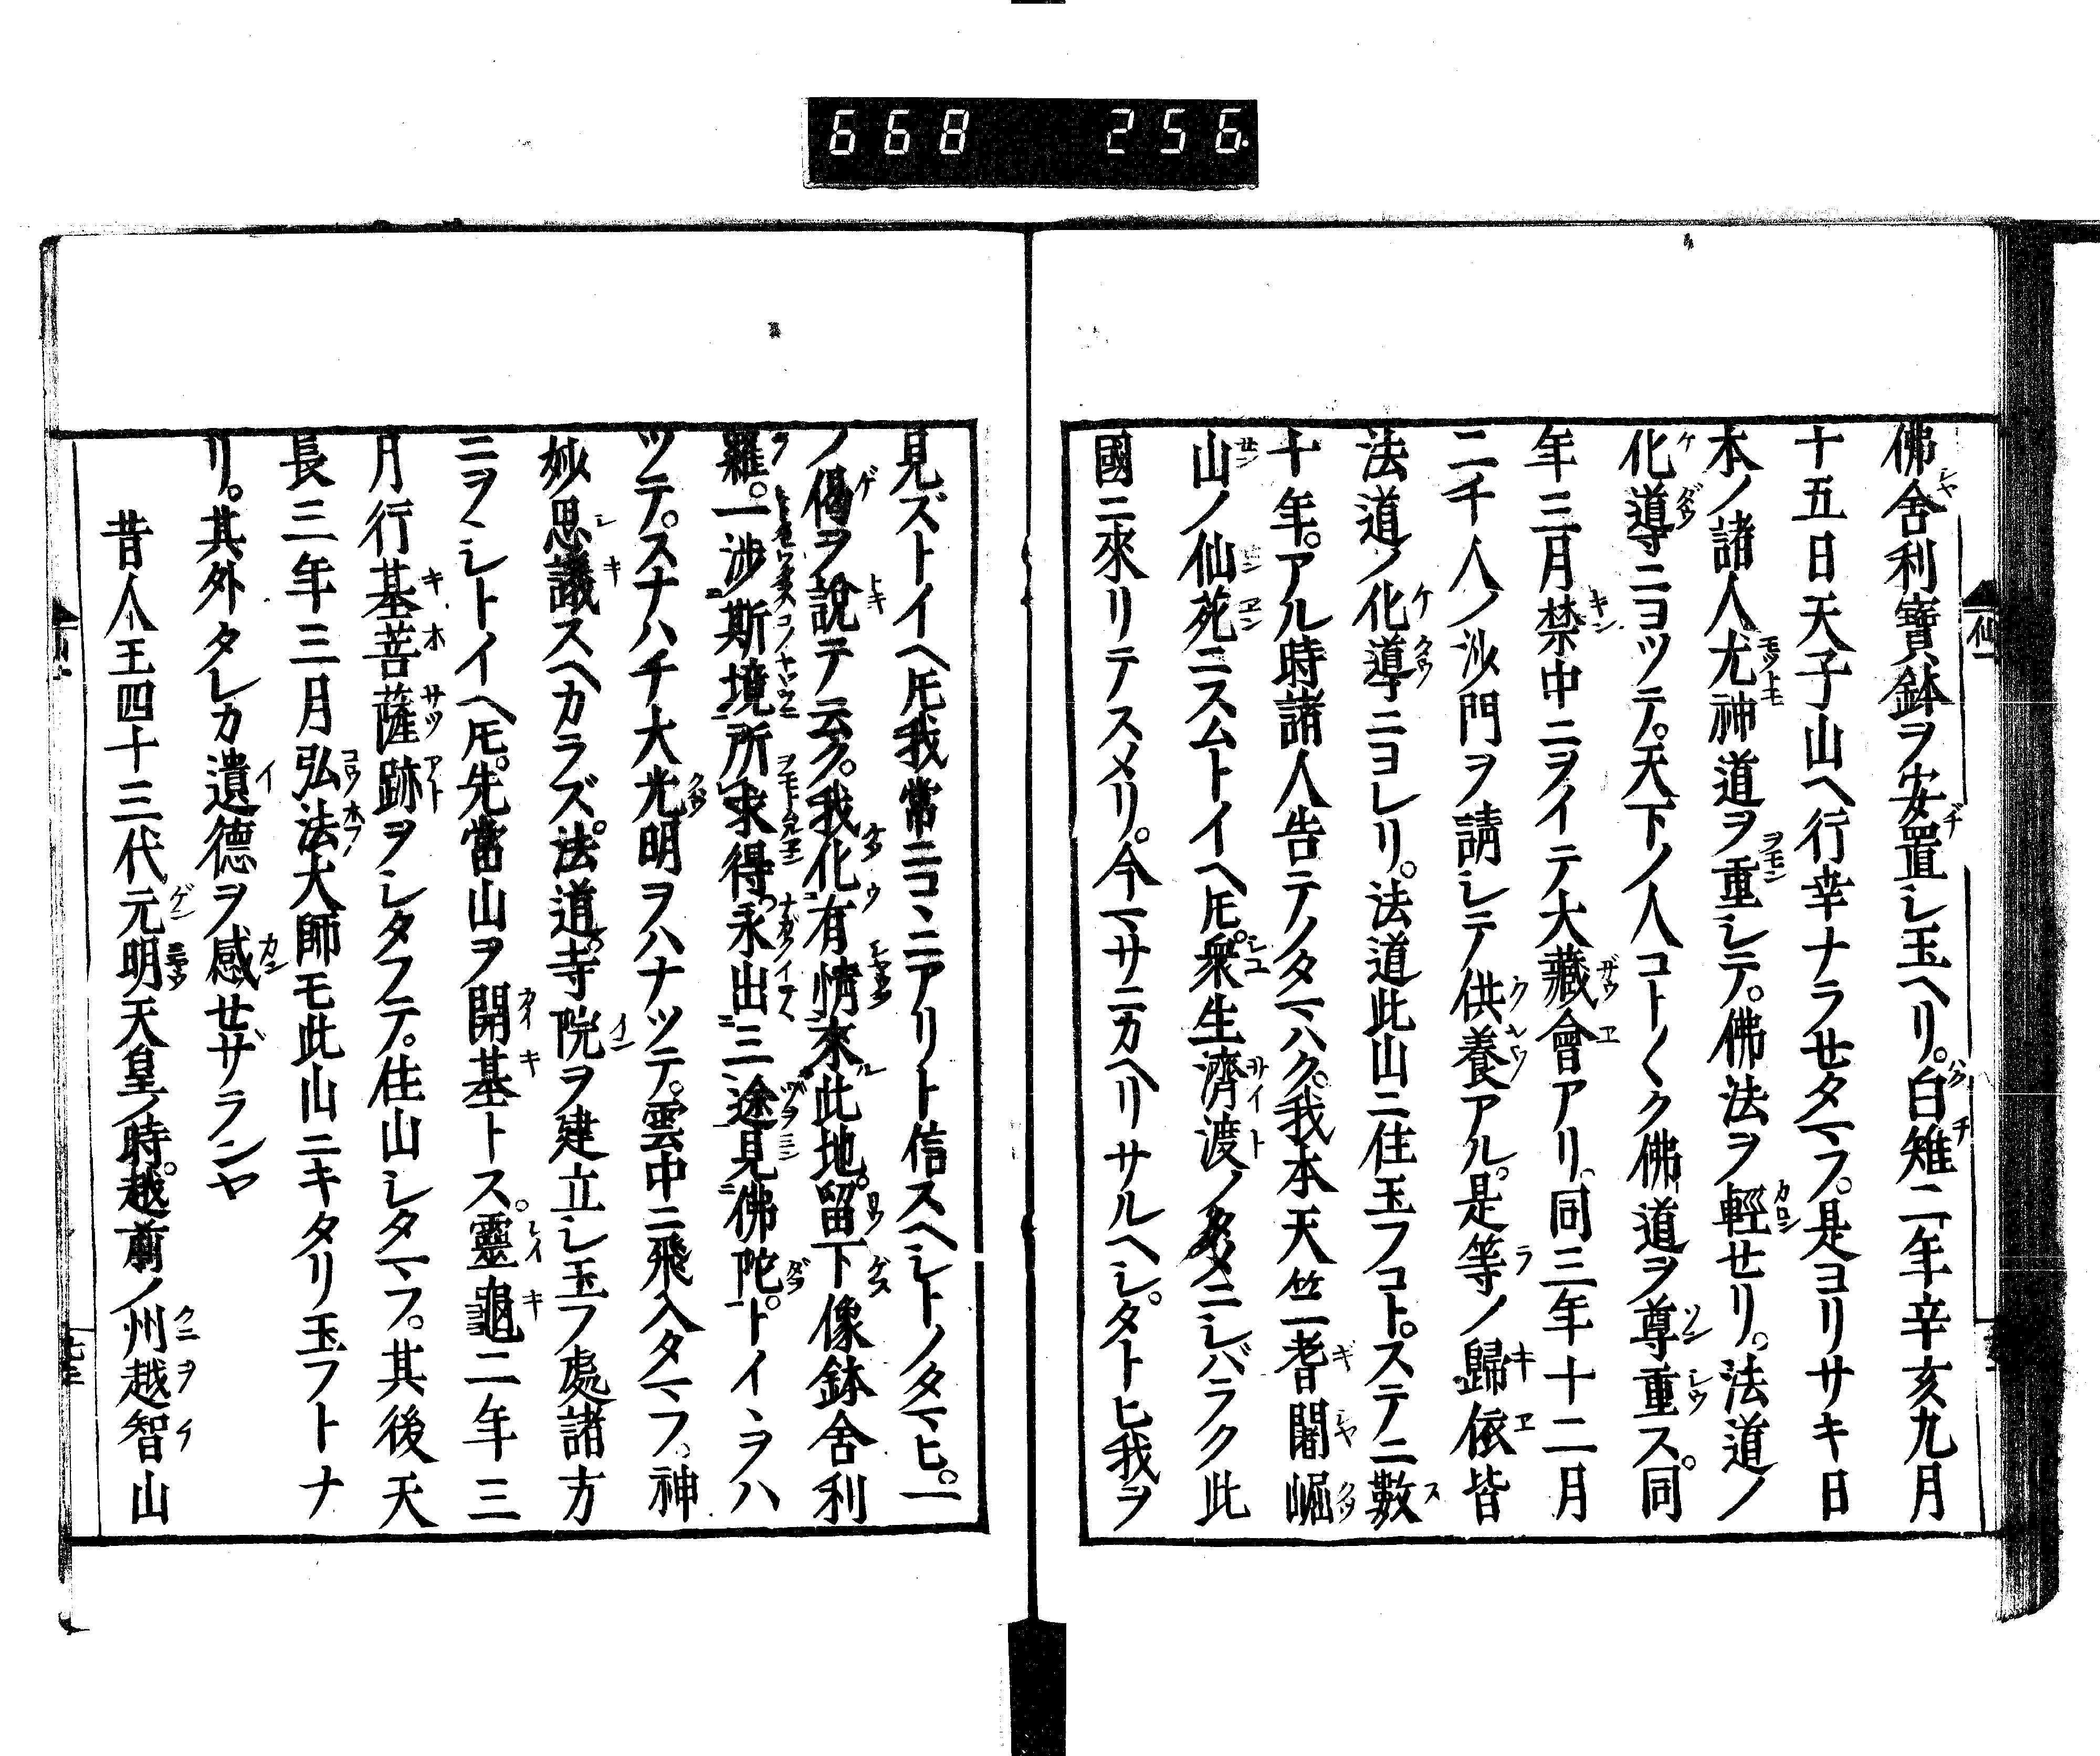 668 256
佛舎利寶鉢ヲ安置シ玉ヘリ。白雉二年辛亥九月
十五日天子山ヘ行幸ナラせタマフ。是ヨリサキ日
本ノ諸人尤神道ヲ重シテ。佛法ヲ輕せリ。法道ノ
化導ニヨツテ。天下ノ人コト〱ク佛道ヲ尊重ス。同
年三月禁中ニヲイテ大藏會アリ。同三年十二月
二千人ノ沙門ヲ請シテ供養アル。是等ノ歸依皆
法道ノ化導ニヨレリ。法道此山ニ住玉フコト。ステニ數
十年。アル時諸人告テノタマハク。我本天竺耆闍崛
山ノ仙苑ニスムトイヘ𪜈。衆生濟渡ノタメニシバラク此
國ニ來リテスメリ。今マサニカヘリサルヘシ。タトヒ我ヲ
見ズトイヘ𪜈我常ニコヽニアリト信スヘシトノタマヒ。一
ノ偈ヲ說テ云ク。我化有情來此地。留下像鉢舎利
羅。一渉斯境所求得。永出三途見佛陀。トイヽヲハ
ツテ。スナハチ大光明ヲハナツテ。雲中ニ飛入タマフ。神
妙思議スヘカラズ。法道寺院ヲ建立シ玉フ處諸方
ニヲヽシトイヘ𪜈。先當山ヲ開基トス。靈龜二年三
月行基菩薩跡ヲシタフテ。住山シタマフ。其後天
長三年三月弘法大師モ此山ニキタリ玉フトナ
リ。其外タレカ遺德ヲ感せザランヤ
昔人王四十三代元明天皇ノ時。越前ノ州越智山